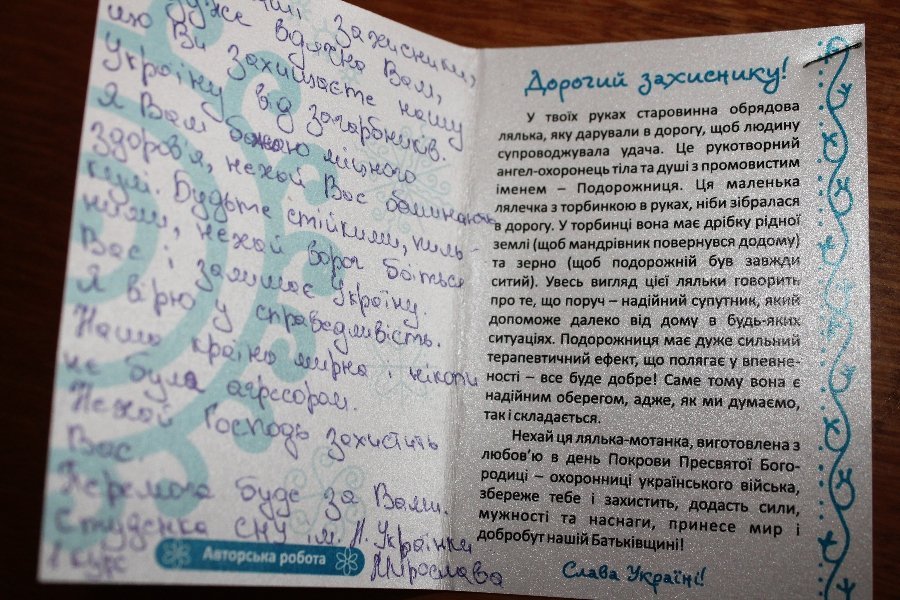 захисники,
дуже вдячна Вам,
що Ви захищаєте нашу
Україну від загарбників.
Я Вам бажаю міцного
здоров'я, нехай Вас оминають
кулі. Будьте стійкими, пиль-
ними, нехай ворог боїться
Вас і залишає Україну.
Я вірю у справедливість.
Наша країна мирна і ніколи
не була агресором.
Нехай Господь захистить
Вас.
Перемога буде за Вами.
Студенка СНУ ім. Л. Українки
1 курс Мирослава
Авторська робота
Дорогий захиснику!
У твоїх руках старовинна обрядова
лялька, яку дарували в дорогу, щоб людину
супроводжувала удача. Це рукотворний
ангел-охоронець тіла та душі з промовистим
іменем – Подорожниця. Ця маленька
лялечка з торбинкою в руках, ніби зібралася
в дорогу. У торбинці вона має дрібку рідної
землі (щоб мандрівник повернувся додому)
та зерно (щоб подорожній був завжди
ситий). Увесь вигляд цієї ляльки говорить
про те, що поруч – надійний супутник, який
допоможе далеко від дому в будь-яких
ситуаціях. Подорожниця має дуже сильний
терапевтичний ефект, що полягає у впевне-
ності – все буде добре! Саме тому вона є
надійним оберегом, адже, як ми думаємо,
так і складається.
Нехай ця лялька-мотанка, виготовлена з
любов'ю в день Покрови Пресвятої Бого-
родиці – охоронниці українського війська,
збереже тебе і захистить, додасть сили,
мужності та наснаги, принесе мир і
добробут нашій Батьківщині!
Слава Україні!